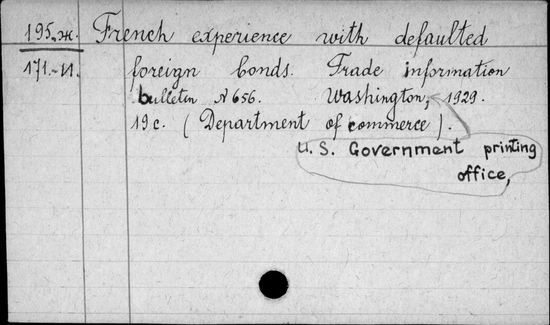 195.ж. French experience with defaulted
171.-И. foreign bonds. Trade information
bulletin № 656. Washington, 1929.
19 c. (Department of commerce).
U.S. Government printing
office,